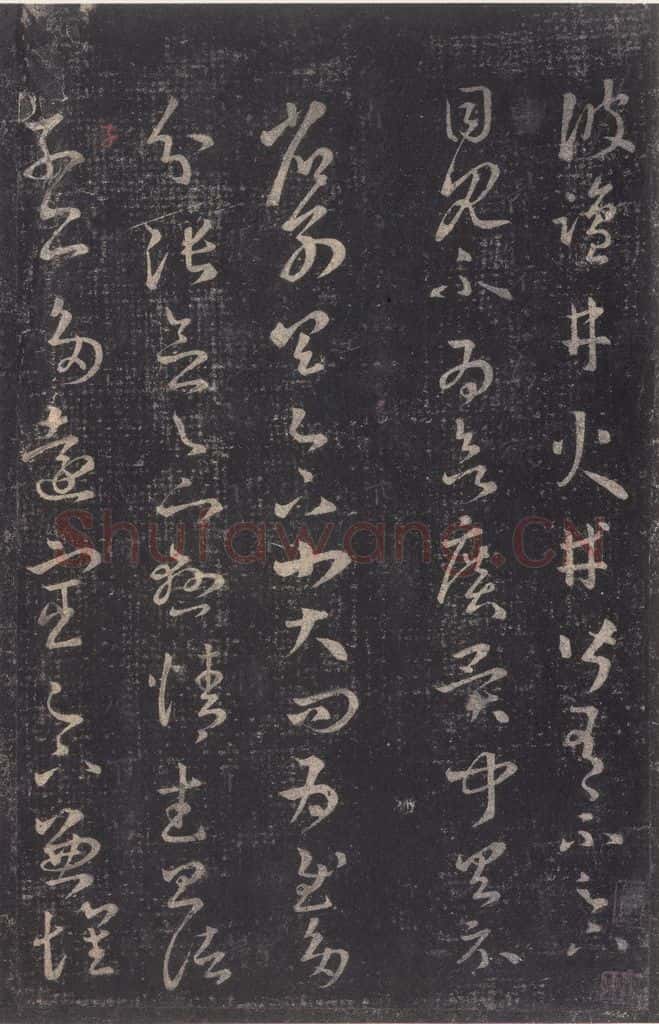 彼鹽井火井皆有不足下
目見不為欲廣異聞具示
省別具足下小大問為慰多
分張念足下懸情武昌諸
子亦多遠宦足下兼懷
Shufawang.cn